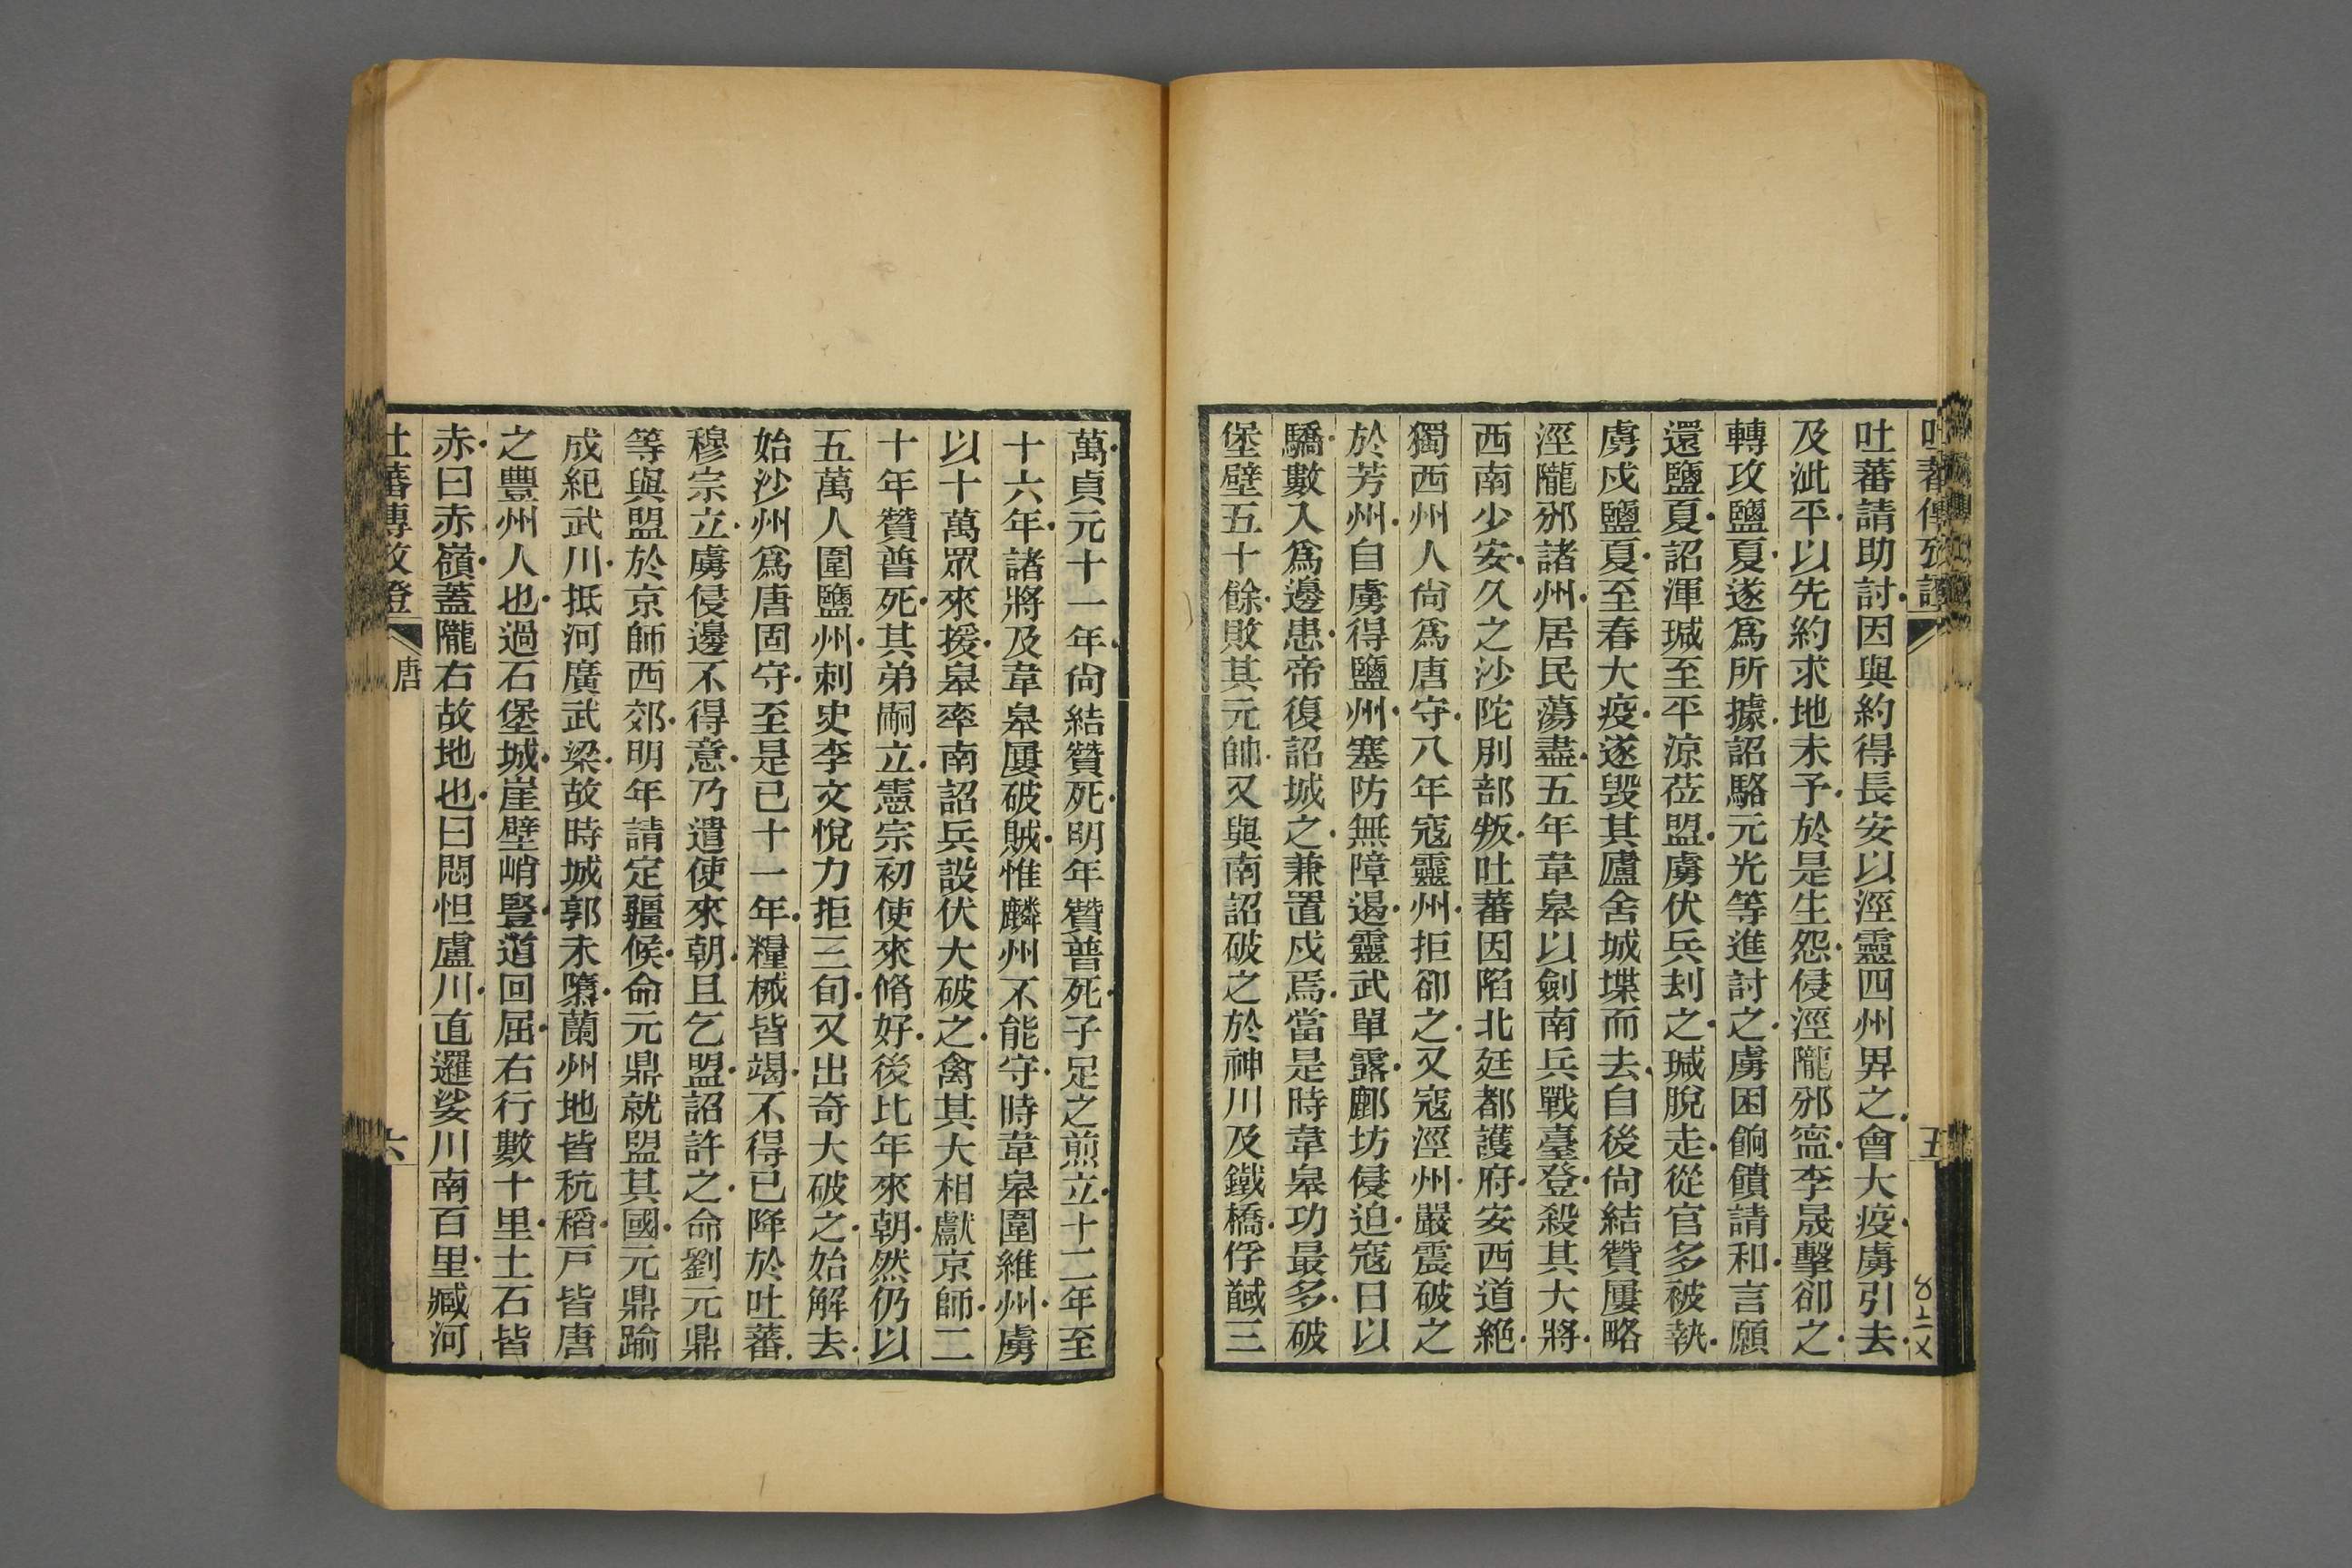 吐蕃傳攷證
五
吐蕃請助討因與約得長安以涇靈四州畀之會大疫虜引去
及泚平以先約求地未予於是生怨侵涇隴邠寍李晟擊卻之
轉攻鹽夏遂爲所據詔駱元光等進討之虜困餉饋請和言願
還鹽夏詔渾瑊至平涼莅盟虜伏兵刦之瑊脫走從官多被執
虜戍鹽夏至春大疫遂毀其廬舍城堞而去自後尙結贊屢略
涇隴邠諸州居民蕩盡五年韋皋以劍南兵戰臺登殺其大將
西南少安久之沙陀別部叛吐蕃因陷北廷都護府安西道絶
獨西州人尙爲唐守八年寇靈州拒卻之又寇涇州嚴震破之
於芳州自虜得鹽州塞防無障遏靈武單露鄜坊侵迫寇日以
驕數入爲邊患帝復詔城之兼置戍焉當是時韋皋功最多破
堡壁五十餘敗其元帥又與南詔破之於神川及鐵橋俘馘三
萬貞元十一年尙結贊死明年贊普死子足之煎立十二年至
十六年諸將及韋皋屢破賊惟麟州不能守時韋皋圍維州虜
以十萬眾來援皋率南詔兵設伏大破之禽其大相獻京師二
十年贊普死其弟嗣立憲宗初使來脩好後比年來朝然仍以
五萬人圍鹽州刺史李文悅力拒三旬又出奇大破之始解去
始沙州爲唐固守至是已十一年糧械皆竭不得已降於吐蕃
穆宗立虜侵邊不得意乃遣使來朝且乞盟詔許之命劉元鼎
等與盟於京師西郊明年請定疆候命元鼎就盟其國元鼎踰
成紀武川抵河廣武梁故時城郭未隳蘭州地皆秔稻戸皆唐
之豐州人也過石堡城崖壁峭豎道回屈右行數十里土石皆
赤曰赤嶺蓋隴右故地也曰悶怛盧川直邏娑川南百里臧河
吐蕃傳攷證
唐
六